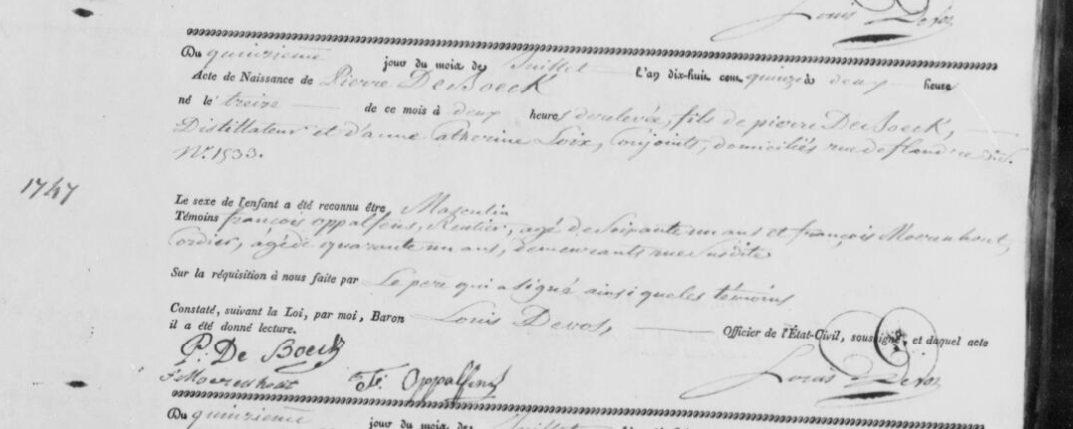 Louis Devos
Du quinzième jour du mois de Juillet l'an dix-huit cent quinze à deux heures
Acte de Naissance de Pierre De Boeck
né le treize de ce mois à deux heures de relevée, fils de pierre De Boeck,
Distillateur et d'anne Catherine Loix, Conjoints, domiciliés rue de flandre
N.° 1533.
1747
Le sexe de l'enfant a été reconnu être Masculin
Témoins françois oppalfens, Rentier, agé de Soixante un ans et françois Moerenhout,
Cordier, âgé de quarante un ans, demeurants rue Susdite
Sur la réquisition à nous faite par Le père qui a signé ainsi que les témoins
Constaté, suivant la Loi, par moi, Baron Louis Devos, Officier de l'État-Civil, soussigné, et duquel acte
il a été donné lecture.
P. De Boeck
F Moerenhout F. Oppalfens Louis Devos
Du quinzième jour du mois de Juillet